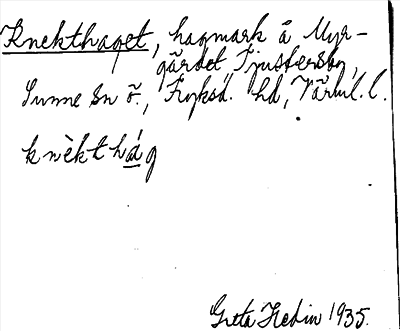 Knekthaget, hagmark å Myr-
gärdet Tjustersby,
Sunne sn ö., Fryksd. hd, Värml. l.
knèkthág
Greta Hedin 1935.